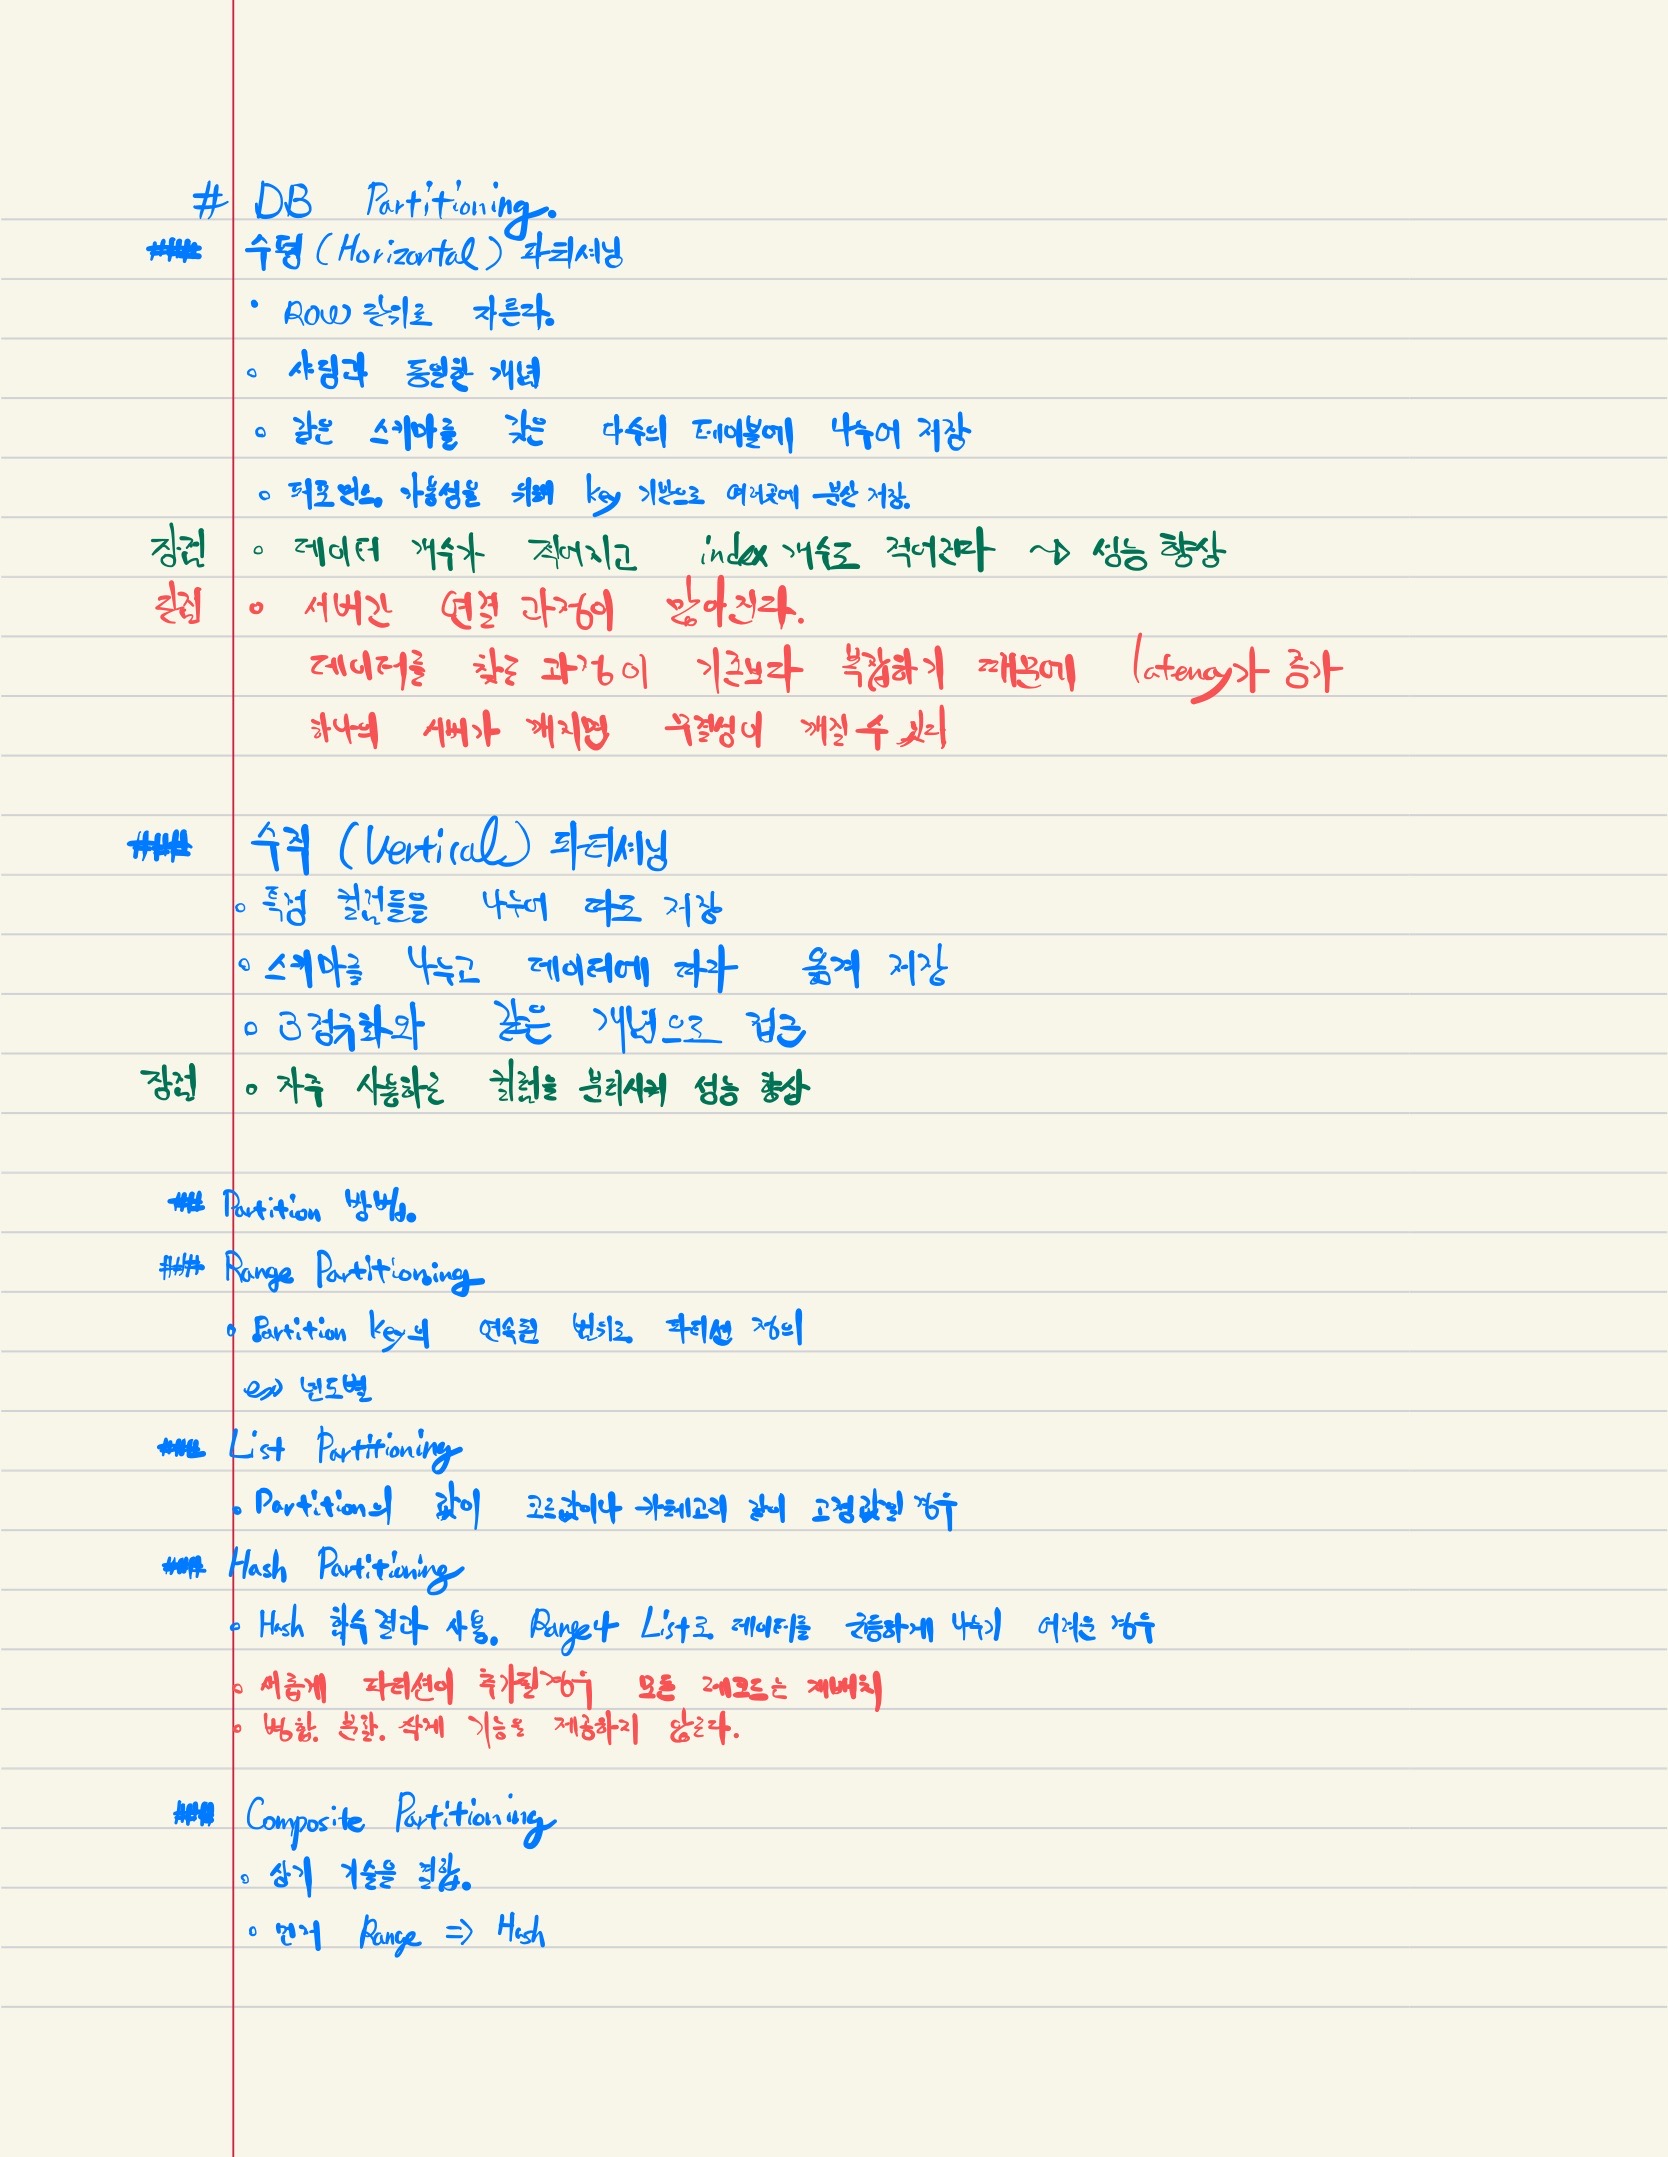 # DB Partitioning.
### 수평 (Horizontal) 파티셔닝
• Row 단위로 자른다.
◦ 샤딩과 동일한 개념
◦ 같은 스키마를 갖은 다수의 테이블에 나누어 저장
◦ 퍼포먼스, 가용성을 위해 key 기반으로 여러곳에 분산 저장.
장점 ◦ 데이터 개수가 적어지고 index 개수도 적어진다 ~> 성능 향상
단점 ◦ 서버간 연결 과정이 많아진다.
데이터를 찾는 과정이 기존보다 복잡하기 때문에 latency가 증가
하나의 서버가 깨지면 무결성이 깨질 수 있다
### 수직 (Vertical) 파티셔닝
◦ 특정 컬럼들을 나누어 따로 저장
◦ 스키마를 나누고 데이터에 따라 옮겨 저장
◦ 3정규화와 같은 개념으로 접근
장점 ◦ 자주 사용하는 컬럼을 분리시켜 성능 향상
## Partition 방법.
### Range Partitioning
◦ Partition key의 연속된 범위로 파티션 정의
ex) 년도별
### List Partitioning
◦ Partition의 값이 코드값이나 카테고리 같이 고정값일 경우
### Hash Partitioning
◦ Hash 함수 결과 사용. Range나 List로 데이터를 균등하게 나누기 어려운 경우
◦ 새롭게 파티션이 추가될경우 모든 레코드는 재배치
◦ 병합, 분할, 삭제 기능을 제공하지 않는다.
### Composite Partitioning
◦ 상기 기술을 결합.
◦ 먼저 Range => Hash